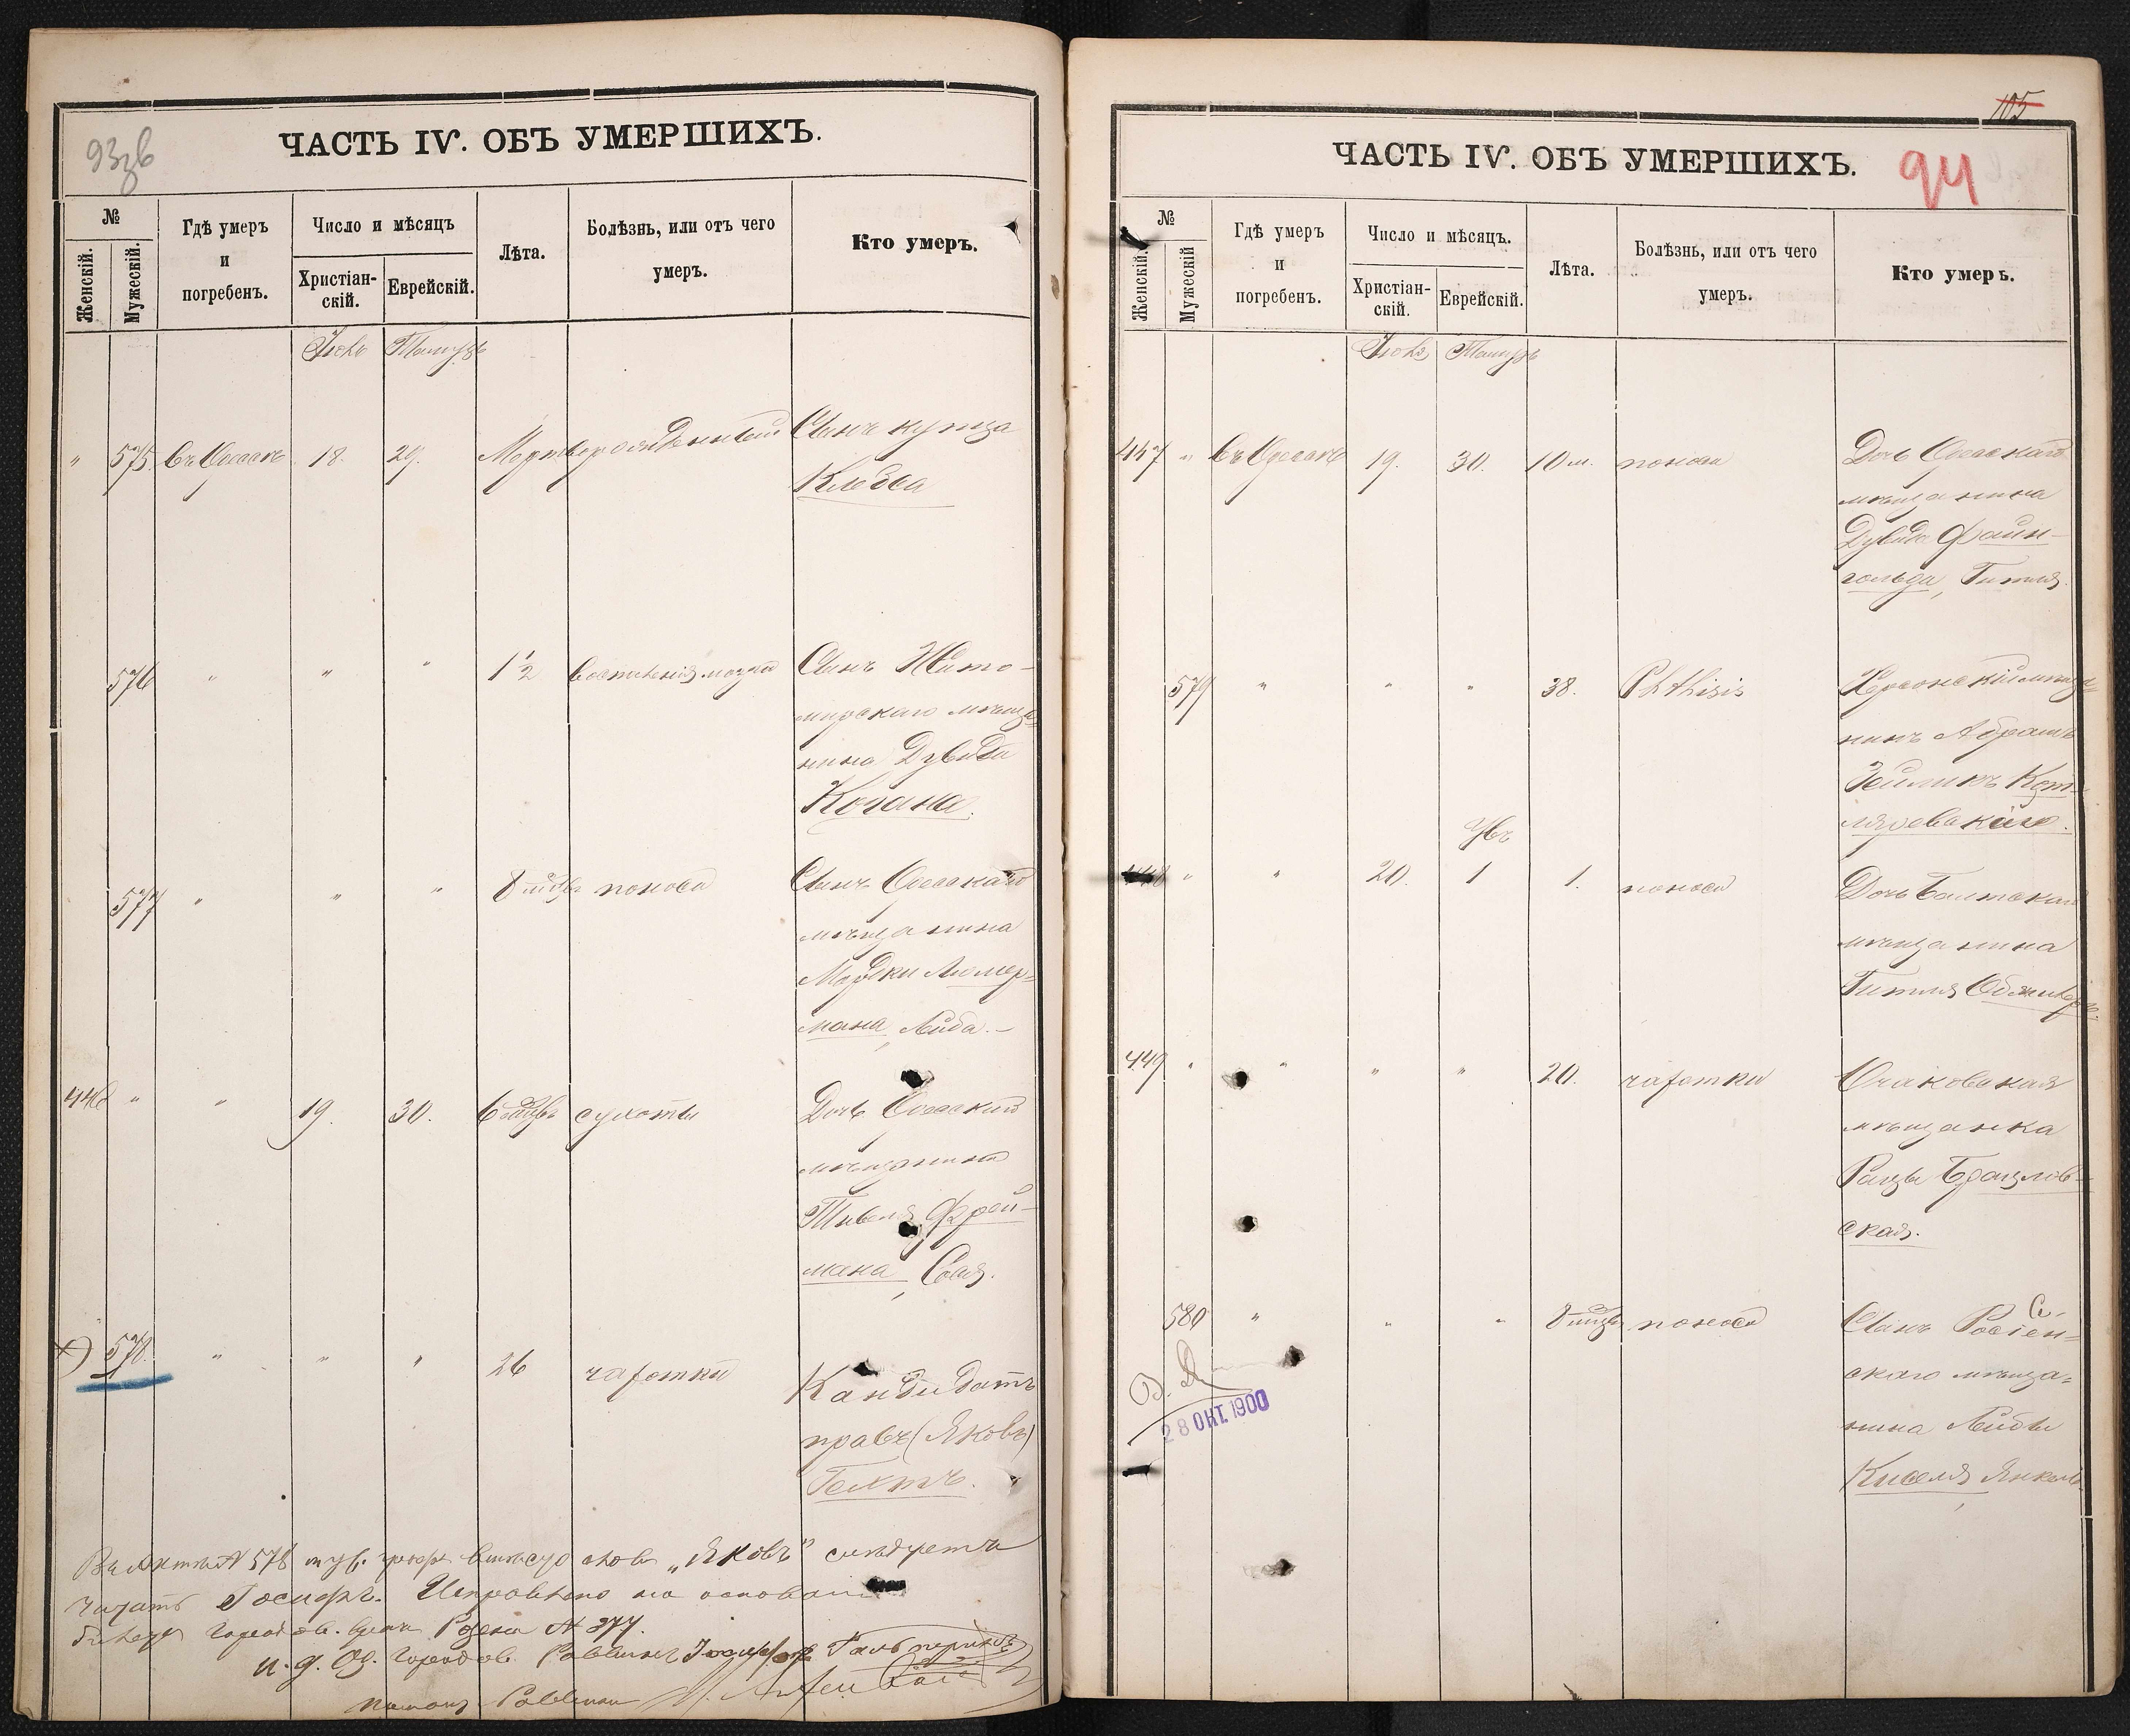 93зв
ЧАСТЬ IV. ОБЪ УМЕРШИХЪ.
№
Женскій.
Мужескій.
Гдѣ умеръ
и
погребенъ.
Число и мѣсяцъ
Христіан-
скій.
Еврейскій.
Лѣта.
Болѣзнь, или отъ чего
умеръ.
Кто умеръ.
Іюль Тамузъ
" 575. Въ Одессѣ 18. 29. Мертворожденный Сынъ купца
576 " " " 1 1/2 воспаленія мозга Сынъ Жито-
мирскаго мѣща-
нина Дувида
Когана.
577 " " " 8 мѣсц. поноса Сынъ Одесскаго
мѣщанина
Мордки Лимер-
мана, Лейба.-
446 " " 19. 30. 6 мѣсц. сухоты Дочь Одесскаго
мѣщанина
Тивеля Фрей-
мана, Соня.
578. " " " 26 чахотки Кандидатъ
правъ (Яковъ)
Гехтъ.
Въ актѣ № 578 муж. вмѣсто слова "Яковъ" слѣдуетъ
читать Іосифъ. Исправлено на основаніи
№ 277.
и. д. Од. Городов. Раввина Іосифъ Гальперинъ
Раввина
105
ЧАСТЬ IV. ОБЪ УМЕРШИХЪ.
94
№
Женскій.
Мужескій
Гдѣ умеръ
и
погребенъ.
Число и мѣсяцъ.
Христіан-
скій.
Еврейскій.
Лѣта.
Болѣзнь, или отъ чего
умеръ.
Кто умеръ.
Іюль Тамузъ
447 " Въ Одессѣ 19. 30. 10 м. поноса Дочь Одесскаго
мѣщанина
Дувида Файн-
гольда, Гитля.
579 " " " 38. Phthisis Херсонскій мѣща-
нинъ Абрамъ
Зейликъ Кот-
ляревскій.
448 " " 20. 1 1. поноса Дочь Балтскаго
мѣщанина
Гитля
449 " " " " 20. чахотки Очаковская
мѣщанка
Брацлав-
ская.
580 " " " 8 мѣсц. поноса Сынъ Россіен-
скаго мѣща-
нина Лейбы
Киселя Янкель
28 ОКТ. 1900